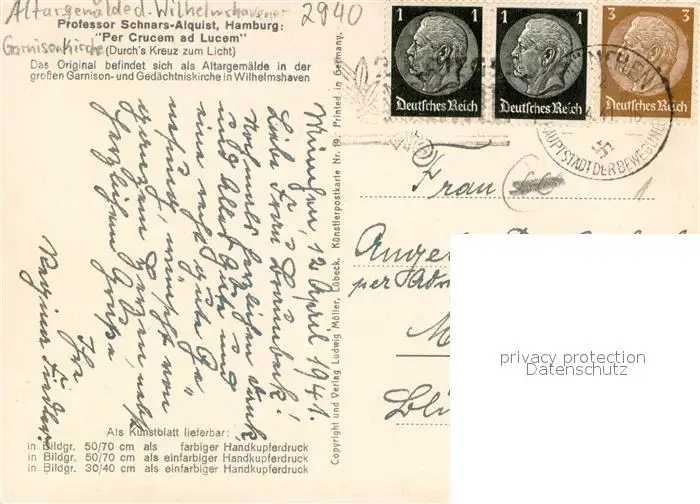 Altargemälde d. Wilhelmshavener
Garnisonkirche
2940
Professor Schnars-Alquist, Hamburg:
"Per Crucem ad Lucem"
(Durch's Kreuz zum Licht)
Das Original befindet sich als Altargemälde in der
großen Garnison- und Gedächtniskirche in Wilhelmshaven
München, 12 April 1941.
Liebe Frau
Nochmals herzlichen Dank,
und alles Gute und
eine recht gute Ge
nesung, wünscht von
ganzem Herzen, nebst
herzlichen Grüße
Ihr
Als Kunstblatt lieferbar:
in Bildgr. 50/70 cm als farbiger Handkupferdruck
in Bildgr. 50/70 cm als einfarbiger Handkupferdruck
in Bildgr. 30/40 cm als einfarbiger Handkupferdruck
Copyright und Verlag Ludwig Möller, Lübeck. Künstlerpostkarte Nr. 19. Printed in Germany.
1 1
Deutsches Reich
1 1
Deutsches Reich
3 3
Deutsches Reich
MÜNCHEN
HAUPTSTADT DER BEWEGUNG
Frau
per
privacy protection
Datenschutz